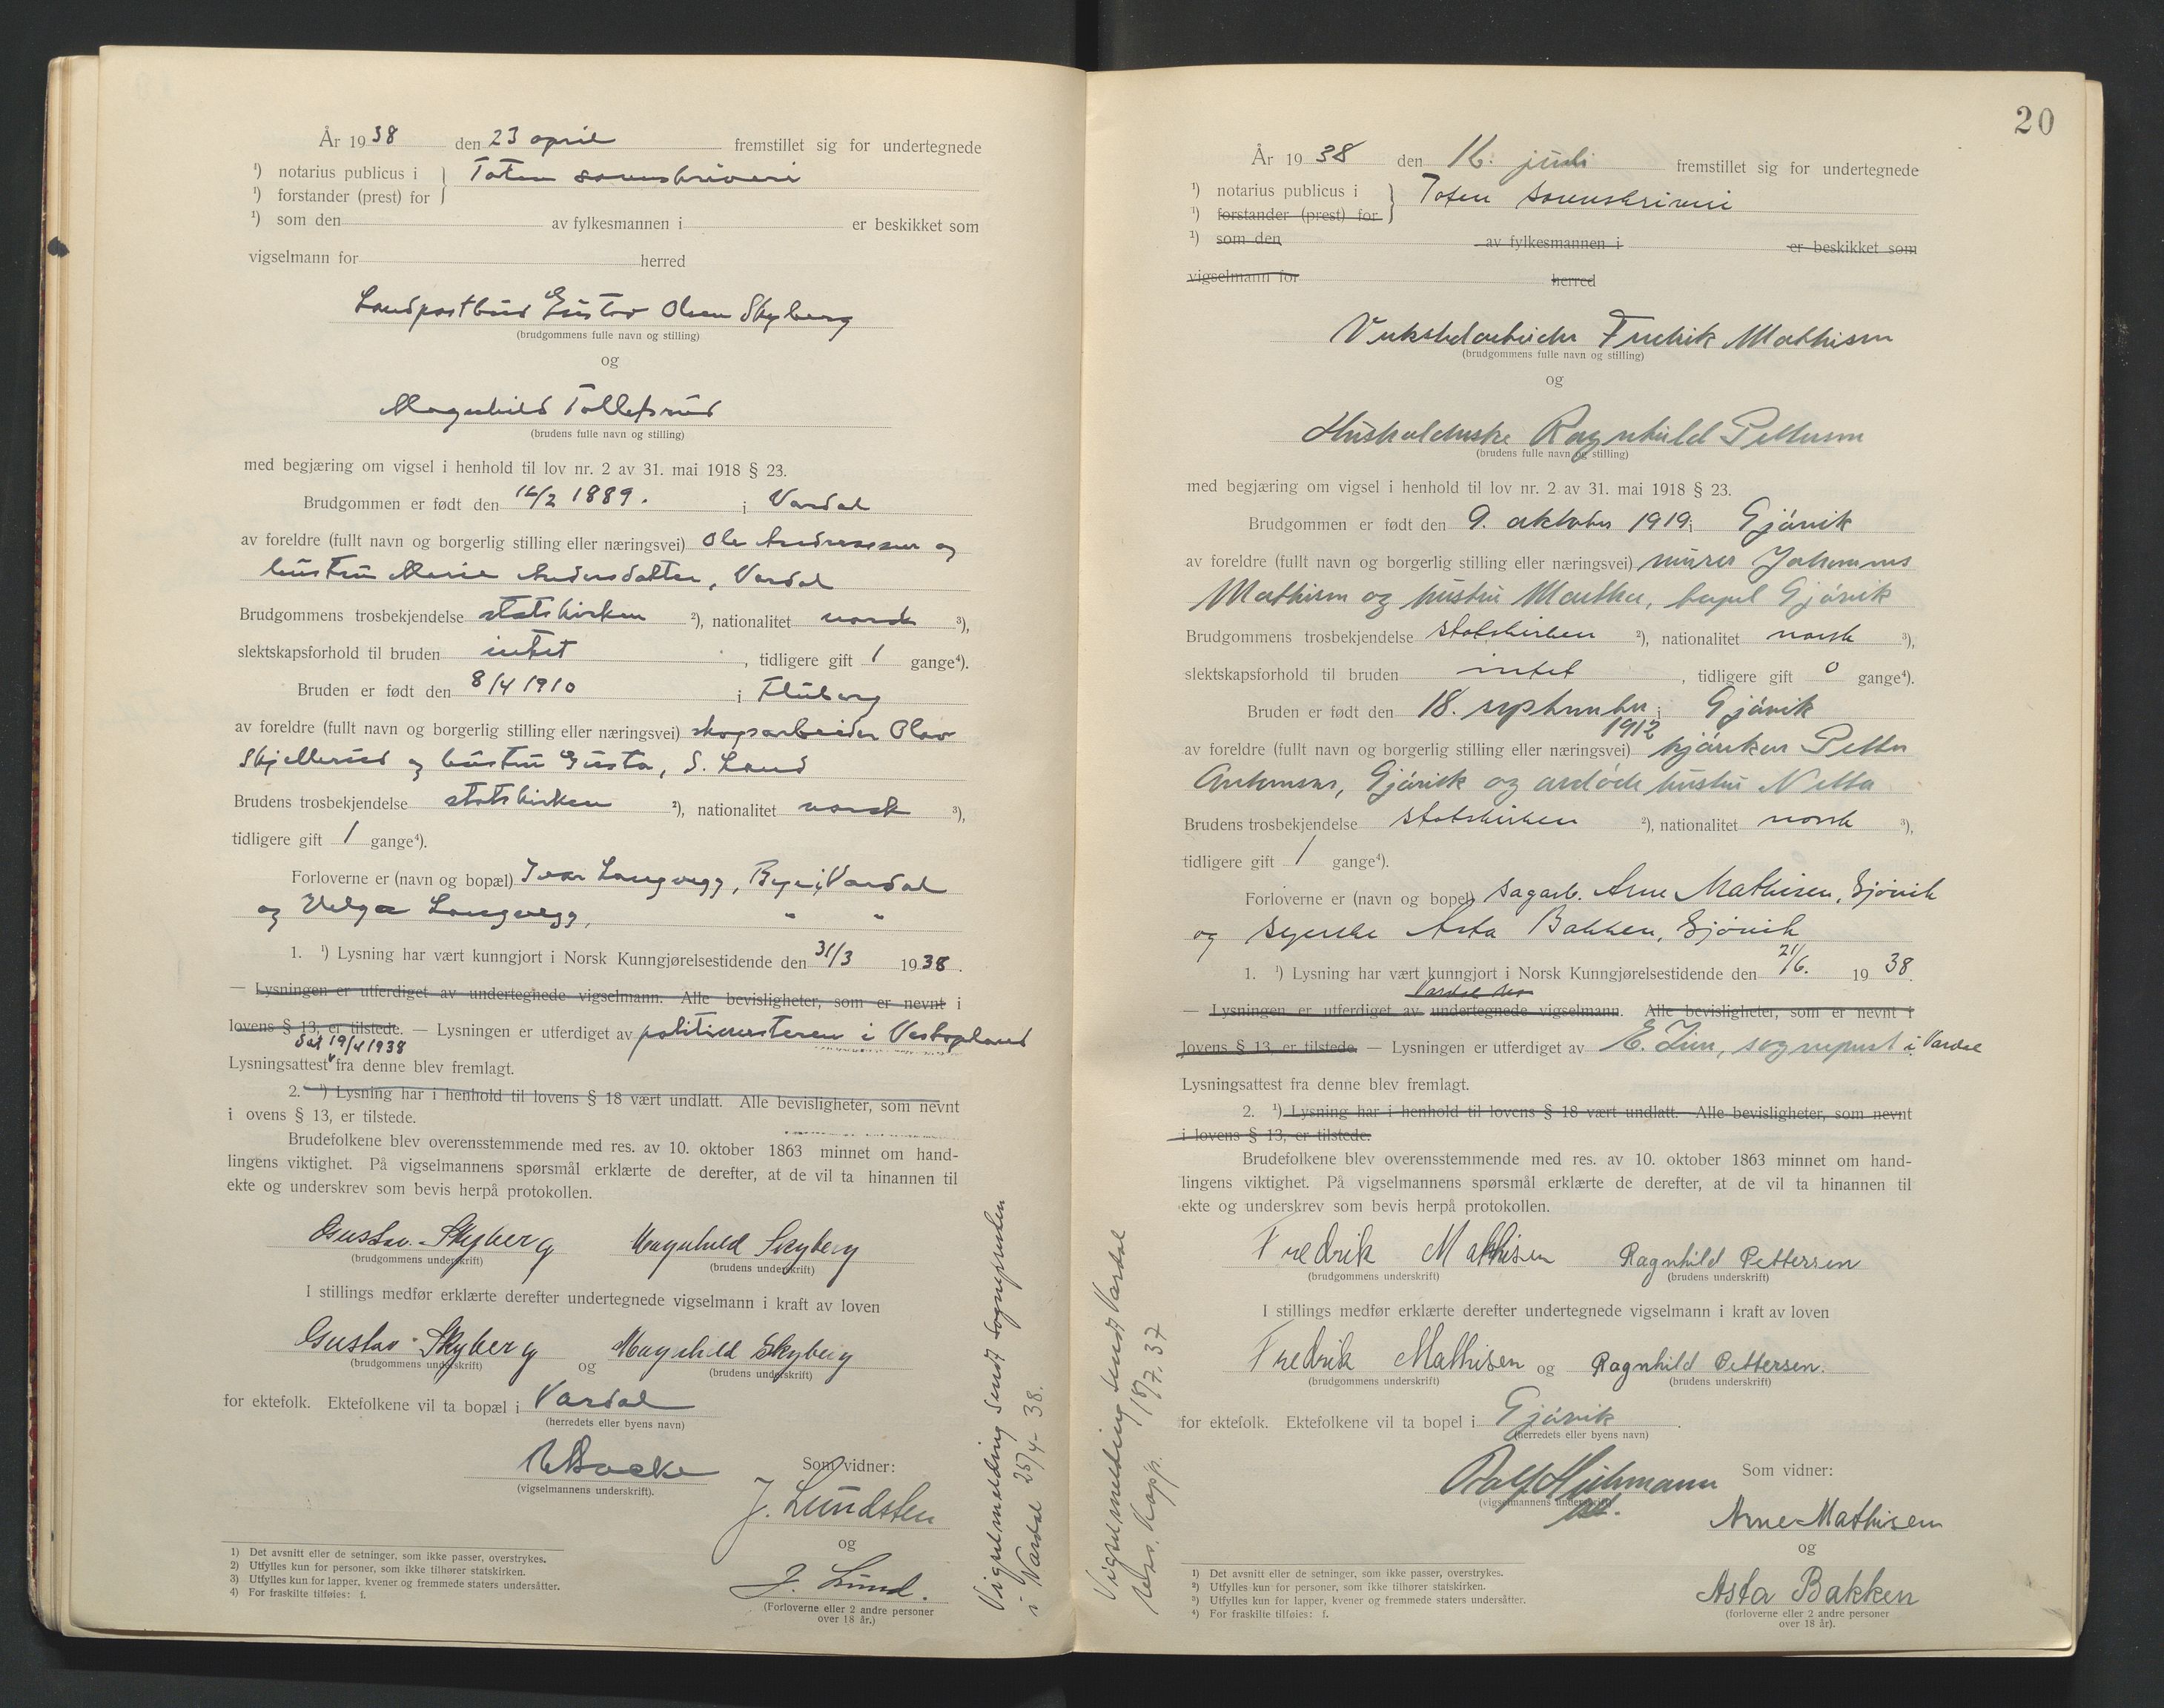 År 1938 den 23 april fremstillet sig for undertegnede
¹) notarius publicus i } Toten sorenskriveri
¹) forstander (prest) for
¹) som den av fylkesmannen i er beskikket som
vigselmann for herred
Landpostbud Gustav Olsen Skyberg
(brudgommens fulle navn og stilling)
og
Magnhild Tollefsrud
(brudens fulle navn og stilling)
med begjæring om vigsel i henhold til lov nr. 2 av 31. mai 1918 § 23.
Brudgommen er født den /2 1889. i Vardal
av foreldre (fullt navn og borgerlig stilling eller næringsvei) Ole Andreassen og
hustru Marie Andersdatter, Vardal
Brudgommens trosbekjendelse statskirken ²), nationalitet norsk ³),
slektskapsforhold til bruden intet , tidligere gift 1 gange⁴).
Bruden er født den 8/4 1910 i Fluberg
av foreldre (fullt navn og borgerlig stilling eller næringsvei) skogsarbeider Olav
Skjellerud og hustru Gusta, S. Land
Brudens trosbekjendelse statskirken ²), nationalitet norsk ³),
tidligere gift 1 gange⁴).
Forloverne er (navn og bopæl) Ivar Langvegg, Vardal
og Helga Langvegg, " "
1. ¹) Lysning har vært kunngjort i Norsk Kunngjørelsestidende den 31/3 1938.
— Lysningen er utferdiget av undertegnede vigselmann. Alle bevisligheter, som er nevnt i
lovens § 13, er tilstede. — Lysningen er utferdiget av politimesteren i Vestopland
dat 19/4 1938
Lysningsattest fra denne blev fremlagt.
2. ¹) Lysning har i henhold til lovens § 18 vært undlatt. Alle bevisligheter, som nevnt
i ovens § 13, er tilstede.
Brudefolkene blev overensstemmende med res. av 10. oktober 1863 minnet om hand-
lingens viktighet. På vigselmannens spørsmål erklærte de derefter, at de vil ta hinannen til
ekte og underskrev som bevis herpå protokollen.
Gustav Skyberg Magnhild Skyberg
(brudgommens underskrift) (brudens underskrift)
I stillings medfør erklærte derefter undertegnede vigselmann i kraft av loven
Gustav Skyberg og Magnhild Skyberg
(brudgommens underskrift) (brudens underskrift)
for ektefolk. Ektefolkene vil ta bopæl i Vardal
(herredets eller byens navn)
(vigselmannens underskrift).
Som vidner:
J. Lundsten
og
J. Lund.
(Forloverne eller 2 andre personer
over 18 år.)
1) Det avsnitt eller de setninger, som ikke passer, overstrykes.
2) Utfylles kun for personer, som ikke tilhører statskirken.
3) Utfylles kun for lapper, kvener og fremmede staters undersåtter.
4) For fraskilte tilføies: f.
Vigselmelding sendt sognepresten
i Vardal 25/4-38.
20
År 1938 den 16. juli fremstillet sig for undertegnede
¹) notarius publicus i } Toten sorenskriveri
¹) forstander (prest) for
¹) som den av fylkesmannen i er beskikket som
vigselmann for herred
Verkstedarbeider Fredrik Mathisen
(brudgommens fulle navn og stilling)
og
Husholderske Ragnhild Pettersen
(brudens fulle navn og stilling)
med begjæring om vigsel i henhold til lov nr. 2 av 31. mai 1918 § 23.
Brudgommen er født den 9. oktober 1919 i Gjøvik
av foreldre (fullt navn og borgerlig stilling eller næringsvei) murer Johannes
Mathisen og hustru Marthe, bopel Gjøvik
Brudgommens trosbekjendelse statskirken ²), nationalitet norsk ³),
slektskapsforhold til bruden intet , tidligere gift 0 gange⁴).
Bruden er født den 18. september i Gjøvik
1912
av foreldre (fullt navn og borgerlig stilling eller næringsvei) Petter
Antonsen, Gjøvik og avdøde hustru Netta
Brudens trosbekjendelse statskirken ²), nationalitet norsk ³),
tidligere gift 1 gange⁴).
Forloverne er (navn og bopel) sagarb. Arne Mathisen, Gjøvik
og syerske Asta Bakken, Gjøvik
1. ¹) Lysning har vært kunngjort i Norsk Kunngjørelsestidende den 21/6. 1938.
Vardal
— Lysningen er utferdiget av undertegnede vigselmann. Alle bevisligheter, som er nevnt i
lovens § 13, er tilstede. — Lysningen er utferdiget av sogneprest i Vardal
Lysningsattest fra denne blev fremlagt.
2. ¹) Lysning har i henhold til lovens § 18 vært undlatt. Alle bevisligheter, som nevnt
i lovens § 13, er tilstede.
Brudefolkene blev overensstemmende med res. av 10. oktober 1863 minnet om hand-
lingens viktighet. På vigselmannens spørsmål erklærte de derefter, at de vil ta hinannen til
ekte og underskrev som bevis herpå protokollen.
Fredrik Mathisen Ragnhild Pettersen
(brudgommens underskrift) (brudens underskrift)
I stillings medfør erklærte derefter undertegnede vigselmann i kraft av loven
Fredrik Mathisen og Ragnhild Pettersen.
(brudgommens underskrift) (brudens underskrift)
for ektefolk. Ektefolkene vil ta bopel i Gjøvik.
(herredets eller byens navn)
Rolf Hjelmann
(vigselmannens underskrift)
Som vidner:
Arne Mathisen
og
Asta Bakken
(forloverne eller 2 andre personer
over 18 år).
¹) Det avsnitt eller de setninger, som ikke passer, overstrykes.
²) Utfylles kun for personer, som ikke tilhører statskirken.
³) Utfylles kun for lapper, kvener og fremmede staters undersåtter.
⁴) For fraskilte tilføies: f.
Vigselmelding sendt Vardal
kapp. 18/7.37